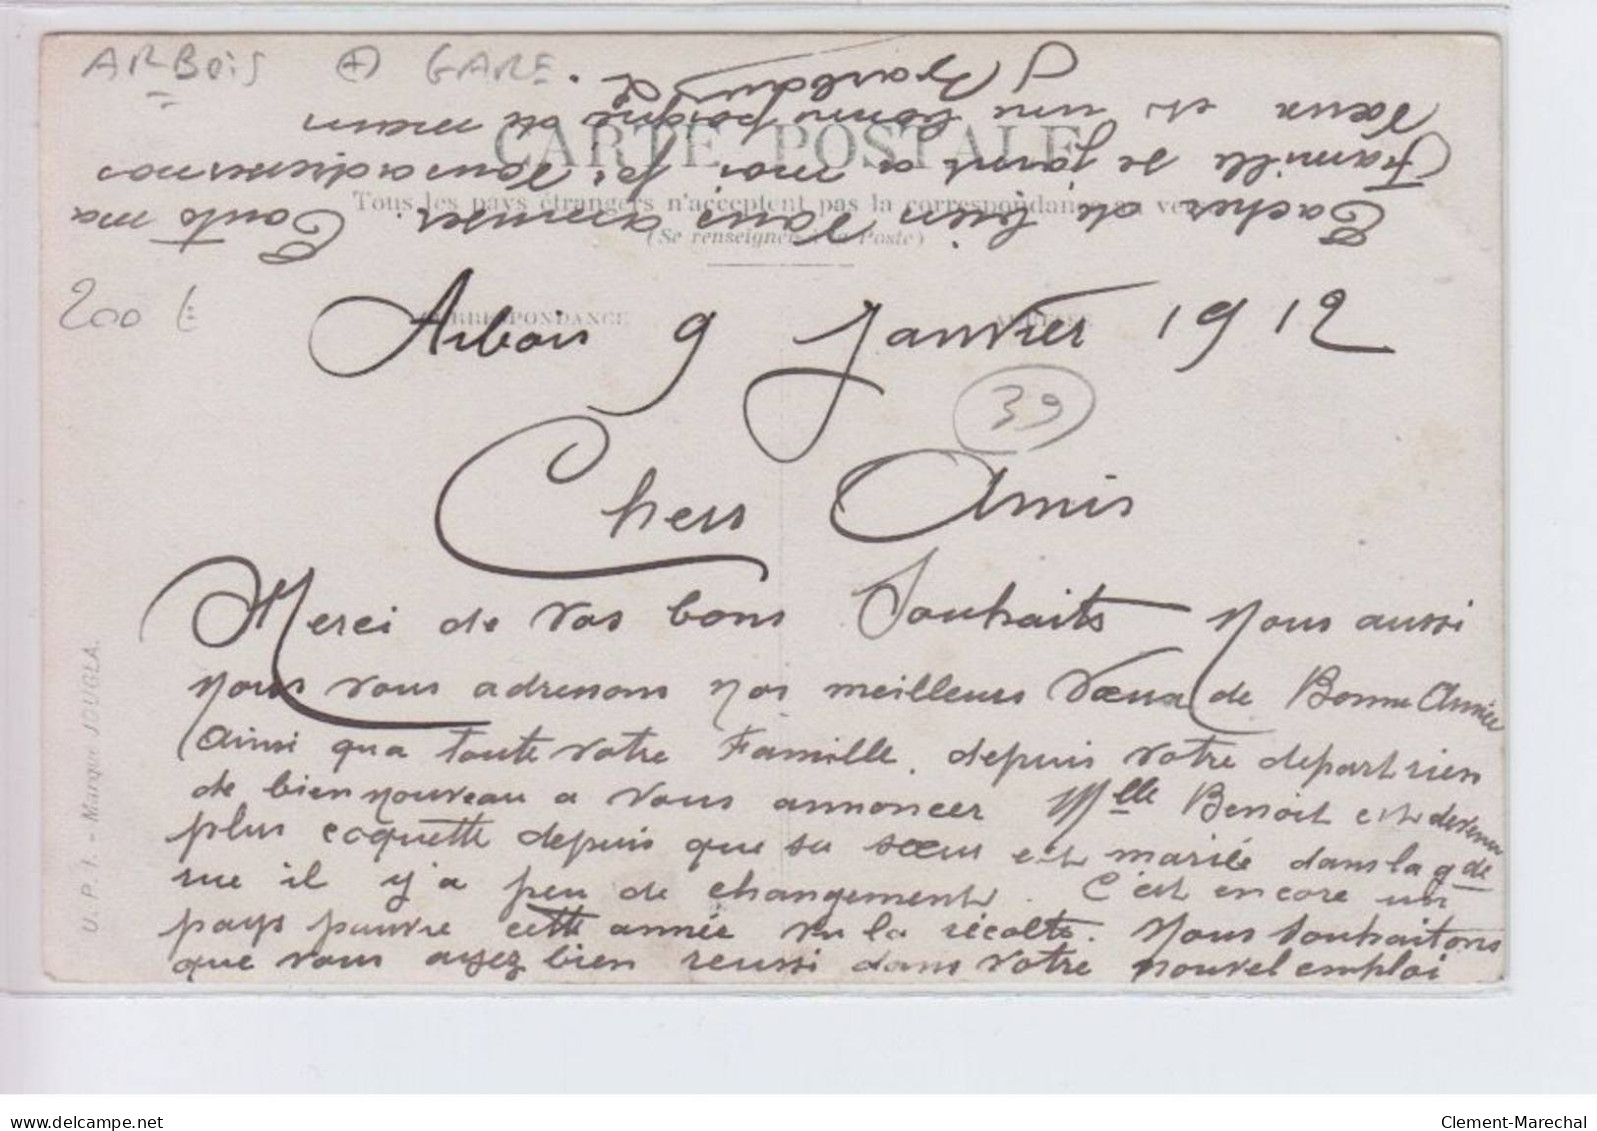 ARBOIS (+) GARE
CARTE POSTALE
Tous les pays étrangers n'acceptent pas la correspondance au verso
(Se renseigner à la Poste)
CORRESPONDANCE
200 E
Arbois 9 Janvier 1912
39
Chers Amis
Merci de vos bons Souhaits Nous aussi
nous vous adressons nos meilleurs Vœux de Bonne Année
Ainsi qu a toute votre Famille. depuis votre depart rien
de bien nouveau a vous annoncer Mlle Benoit est devenu
plus coquette depuis que sa sœur est mariée dans la gde
rue il y'a peu de changement. C'est encore un
pays pauvre cette année vu la récolte. Nous souhaitons
que vous ayez bien reussi dans votre nouvel emploi
Tachez de bien vous amuser. Toute ma
Famille se joint a moi pr vous adresser nos
vœux et une bonne poignée de main
U. P. 1. - Marque JOUGLA.
delcampe.net
Clement-Marechal